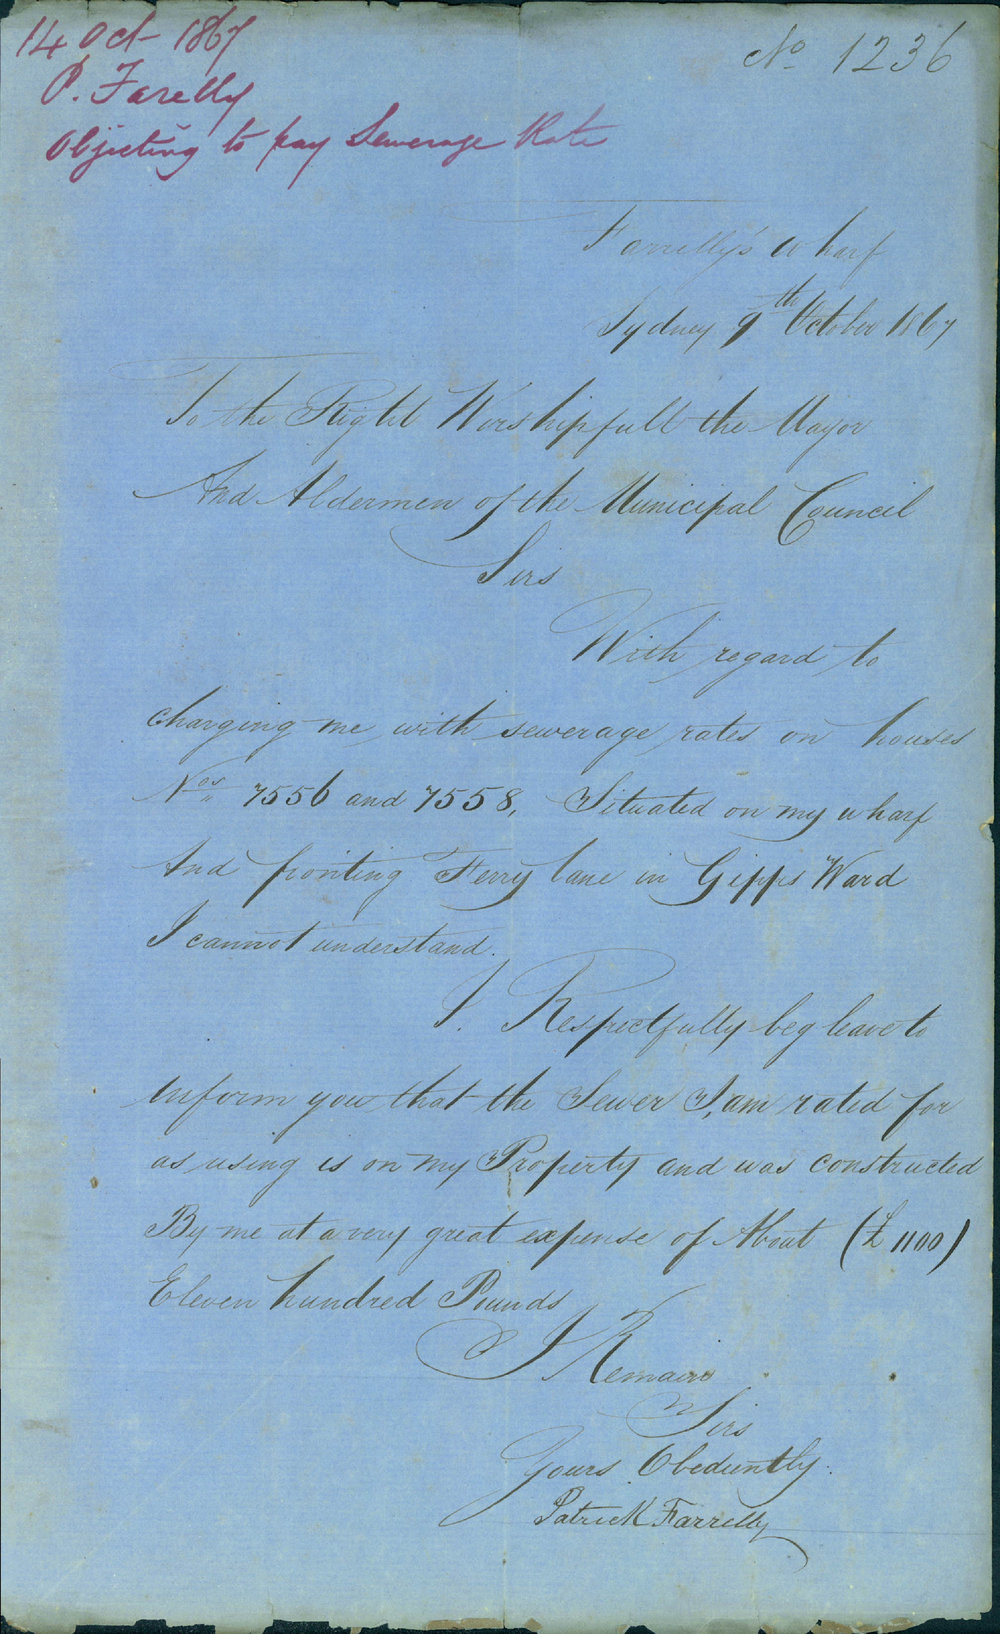 14 Oct 1867
P. Farelly
Objecting to pay Sewerage Rate
No 1236
Farrelly's wharf
Sydney 9th October 1867
To the Right Worshipfull the Mayor
And Aldermen of the Municipal Council
Sirs
With regard to
charging me with sewerage rates on houses
Nos 7556 and 7558, Situated on my wharf
And fronting Ferry lane in Gipps Ward
I cannot understand.
I. Respectfully beg leave to
inform you that the Sewer I, am rated for
as using is on my Property and was constructed
By me at a very great expense of About (£1100)
Eleven hundred Pounds
I Remain
Sirs
Yours Obediently.
Patrick Farrelly